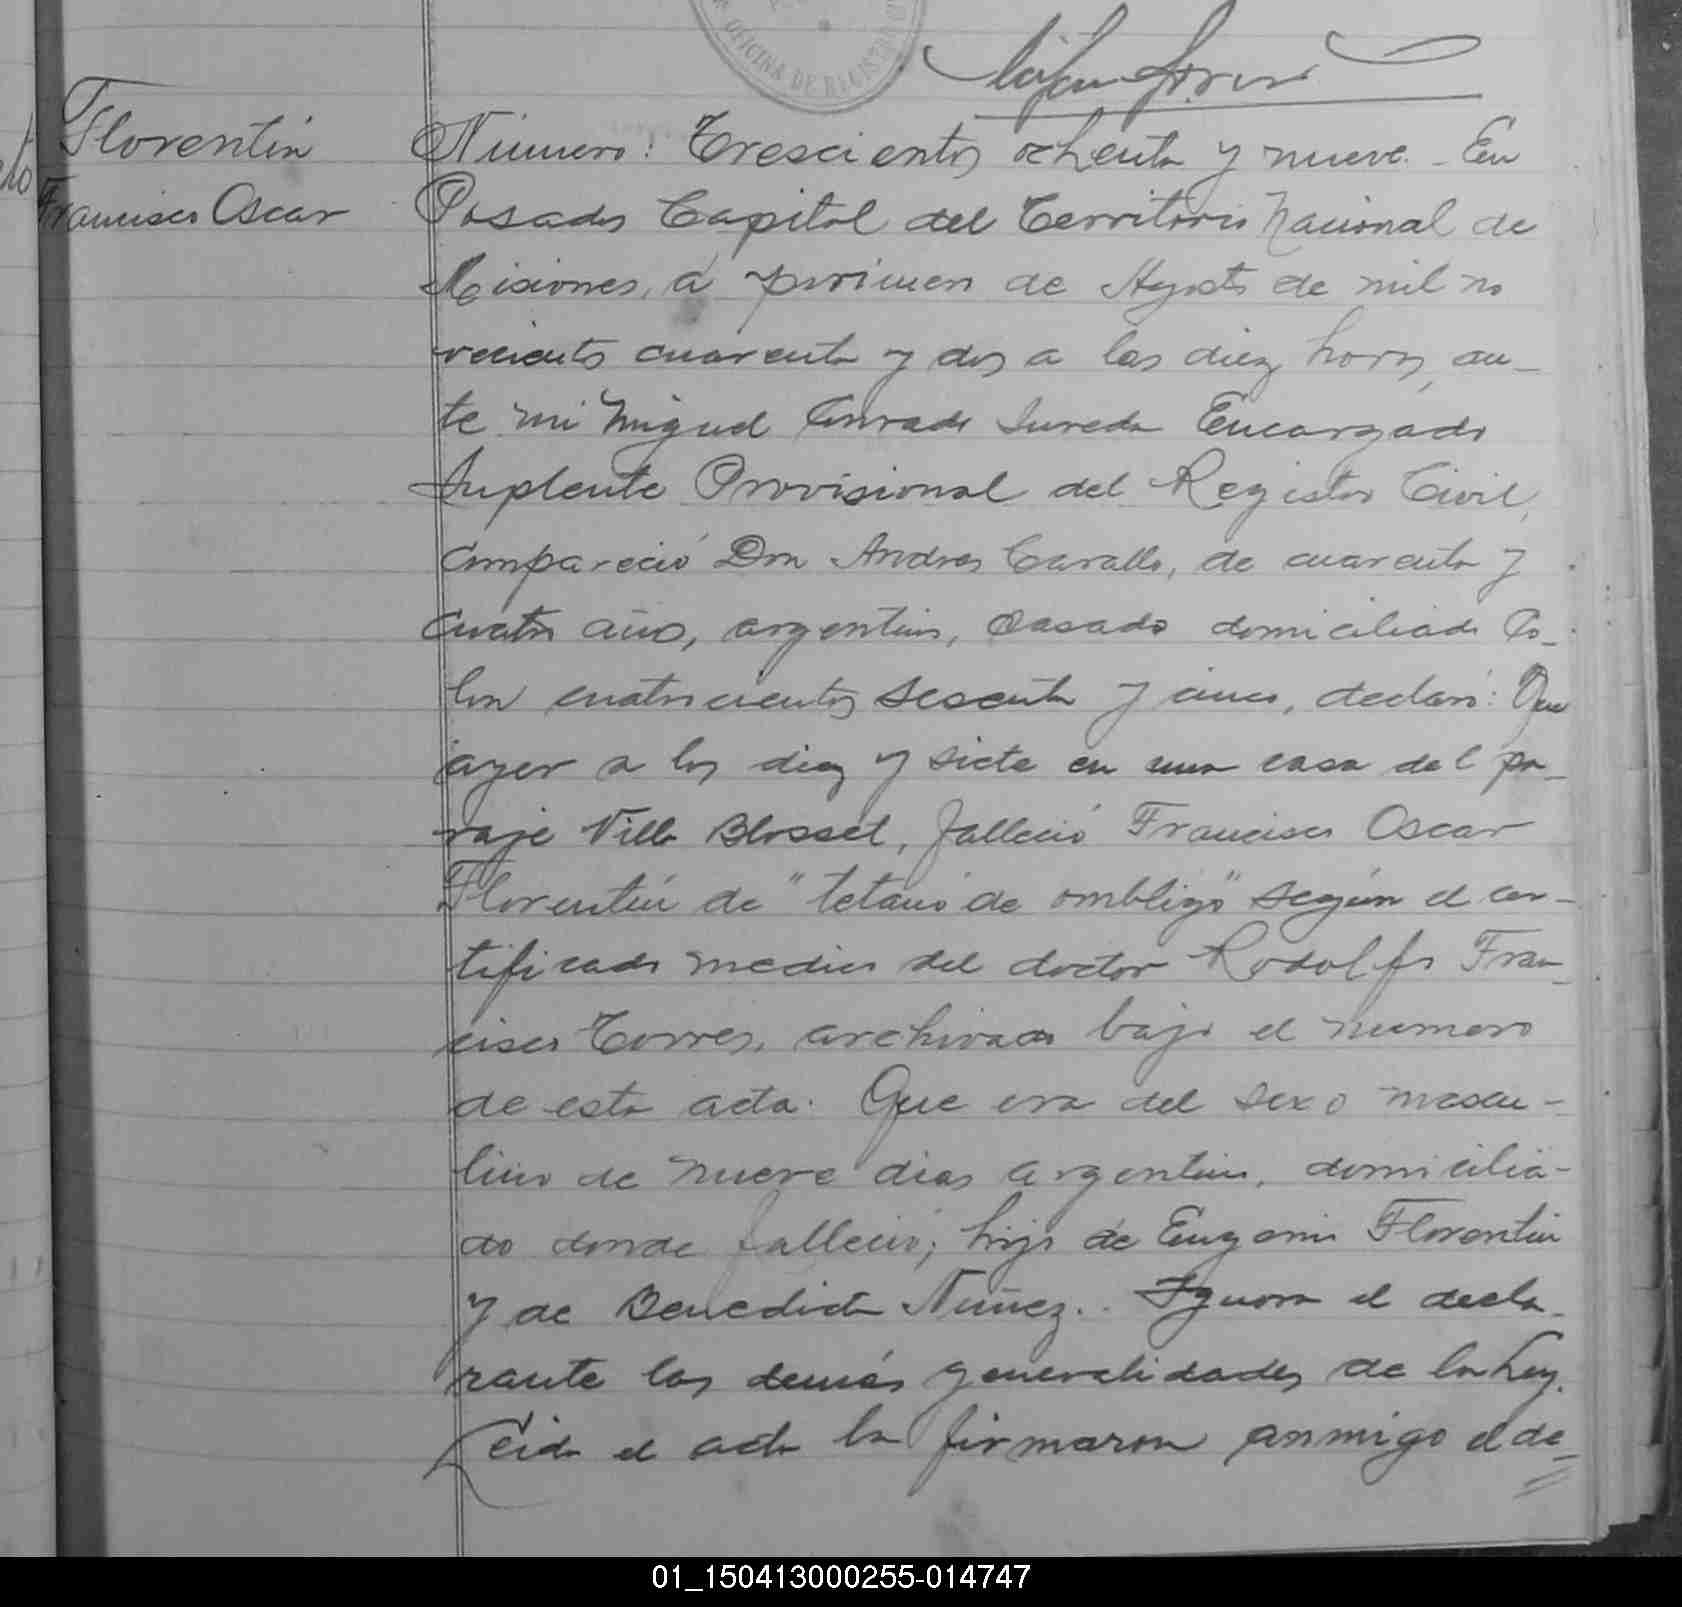 OFICINA DE REGISTRO
Florentin
Francisco Oscar
Número: Trescientos ochenta y nueve. En
Posadas Capital del Territorio Nacional de
Misiones, a primero de Agosto de mil no
vecientos cuarenta y dos a las diez horas, an-
te mi Miguel Conrado Sureda Encargado
Suplente Provisional del Registro Civil,
compareció Don Andres Cavallo, de cuarenta y
cuatro años, argentino, casado domiciliado Co-
lon cuatrocientos sesenta y cinco, declaró: Que
ayer a las diez y siete en una casa del pa-
raje Villa Blosset, falleció Francisco Oscar
Florentín de "tetano de ombligo" según el cer-
tificado medico del doctor Rodolfo Fran-
cisco Torres, archivado bajo el numero
de esta acta. Que era del sexo mascu-
lino de nueve dias argentino, domicilia-
do donde falleció; hijo de Eugenio Florentin
y de Benedicta Nuñez.. Ignora el decla-
rante las demás generalidades de la Ley.
Leida el acta la firmaron conmigo el de-
01_150413000255-014747